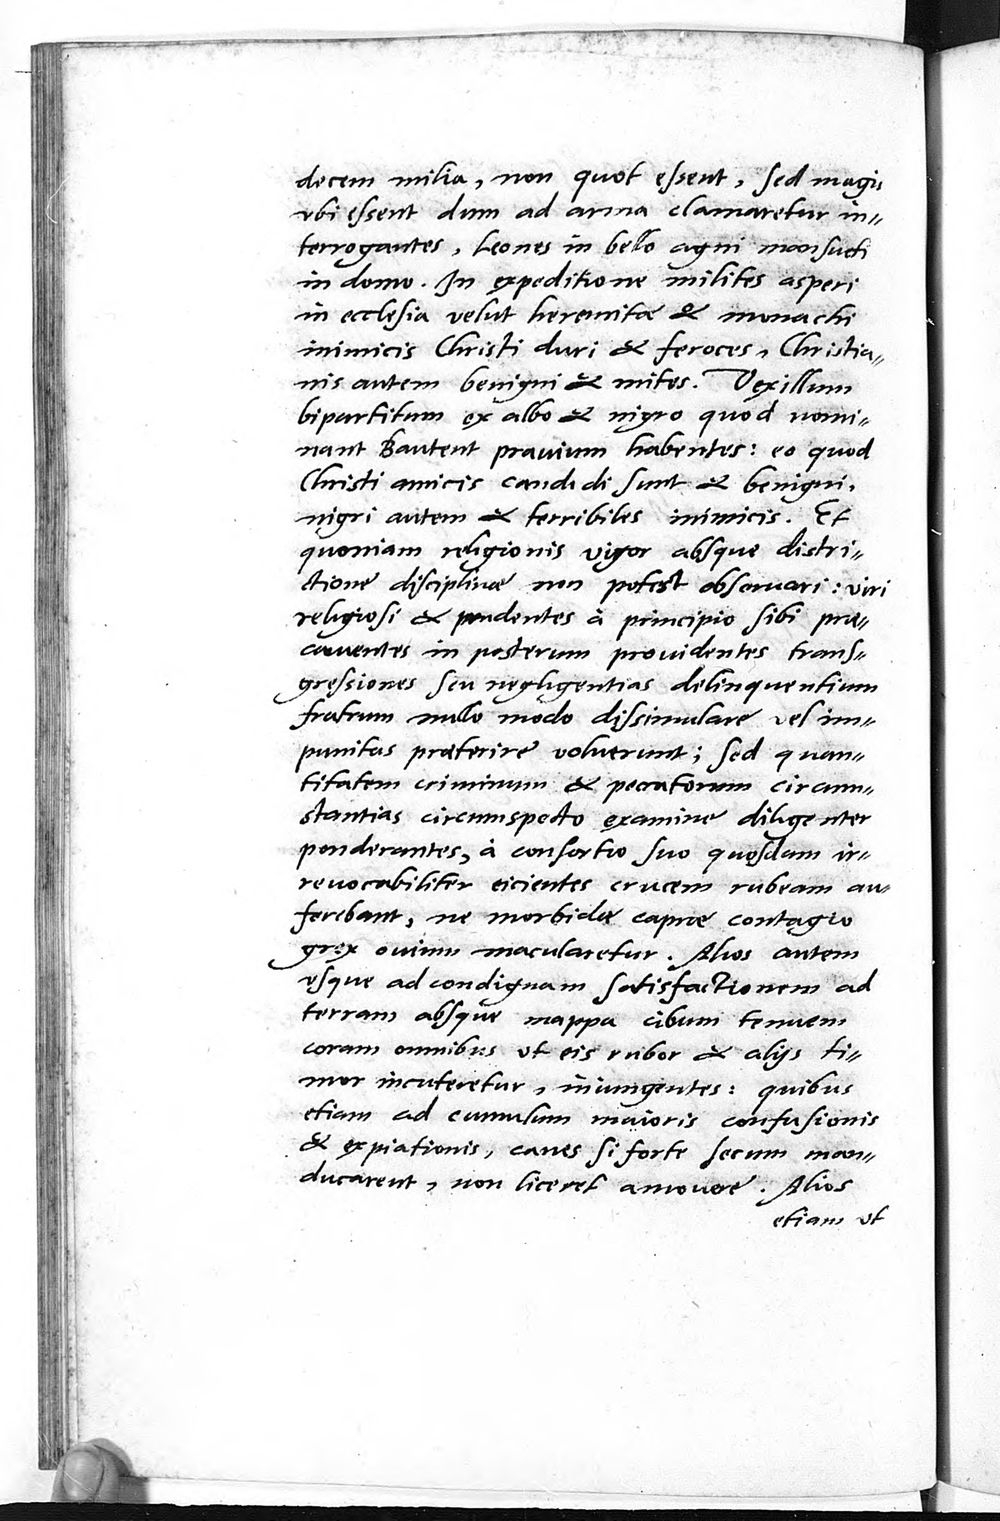 decem milia, non quot essent, sed magis
vbi essent dum ad arma clamaretur in=
terrogantes, Leones in bello agni mansueti
in domo. In expeditione milites asperi
in ecclesia velut heremitæ & monachi
inimicis Christi duri & feroces, Christia=
nis autem benigni & mites. Vexillum
bipartitum ex albo & nigro quod nomi=
nant Bautent prauium habentes: eo quod
Christi amicis candidi sunt & benigni,
nigri autem & terribiles inimicis. Et
quoniam religionis vigor absque distri=
ctione disciplinæ non potest obseruari: viri
religiosi & prudentes à principio sibi præ=
cauentes in posterum prouidentes trans=
gressiones seu negligentias delinquentium
fratrum nullo modo dissimulare vel im=
punitas præterire voluerunt; sed quan=
titatem criminum & peccatorum circum=
stantias circumspecto examine diligenter
ponderantes, à consortio suo quosdam ir=
reuocabiliter eicientes crucem rubeam au=
ferebant, ne morbidæ capræ contagio
grex ouium macularetur. Alios autem
vsque ad condignam satisfactionem ad
terram absque mappa cibum tenuem
coram omnibus vt eis rubor & alijs ti=
mor incuteretur, iniungentes: quibus
etiam ad cumulum maioris confusionis
& expiationis, canes si forte secum man=
ducarent, non liceret amouere. Alios
etiam vt